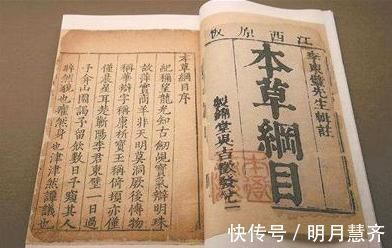 江西原板
李時珍先生輯註
本草綱目
製錦堂吳吉徵發兌
本草綱目序
紀稱望龍光知古劒覘寶氣辨明珠
故萍實商羊非天明莫洞厥後博物
稱華辯字稱康析寶玉稱倚頓亦僅
僅晨星耳楚蘄陽李君東璧一日過
予弇山園謁予留飲數日予窺其人
睟然貌也癯然身也津津然譚議也
快传号/明月慧齐